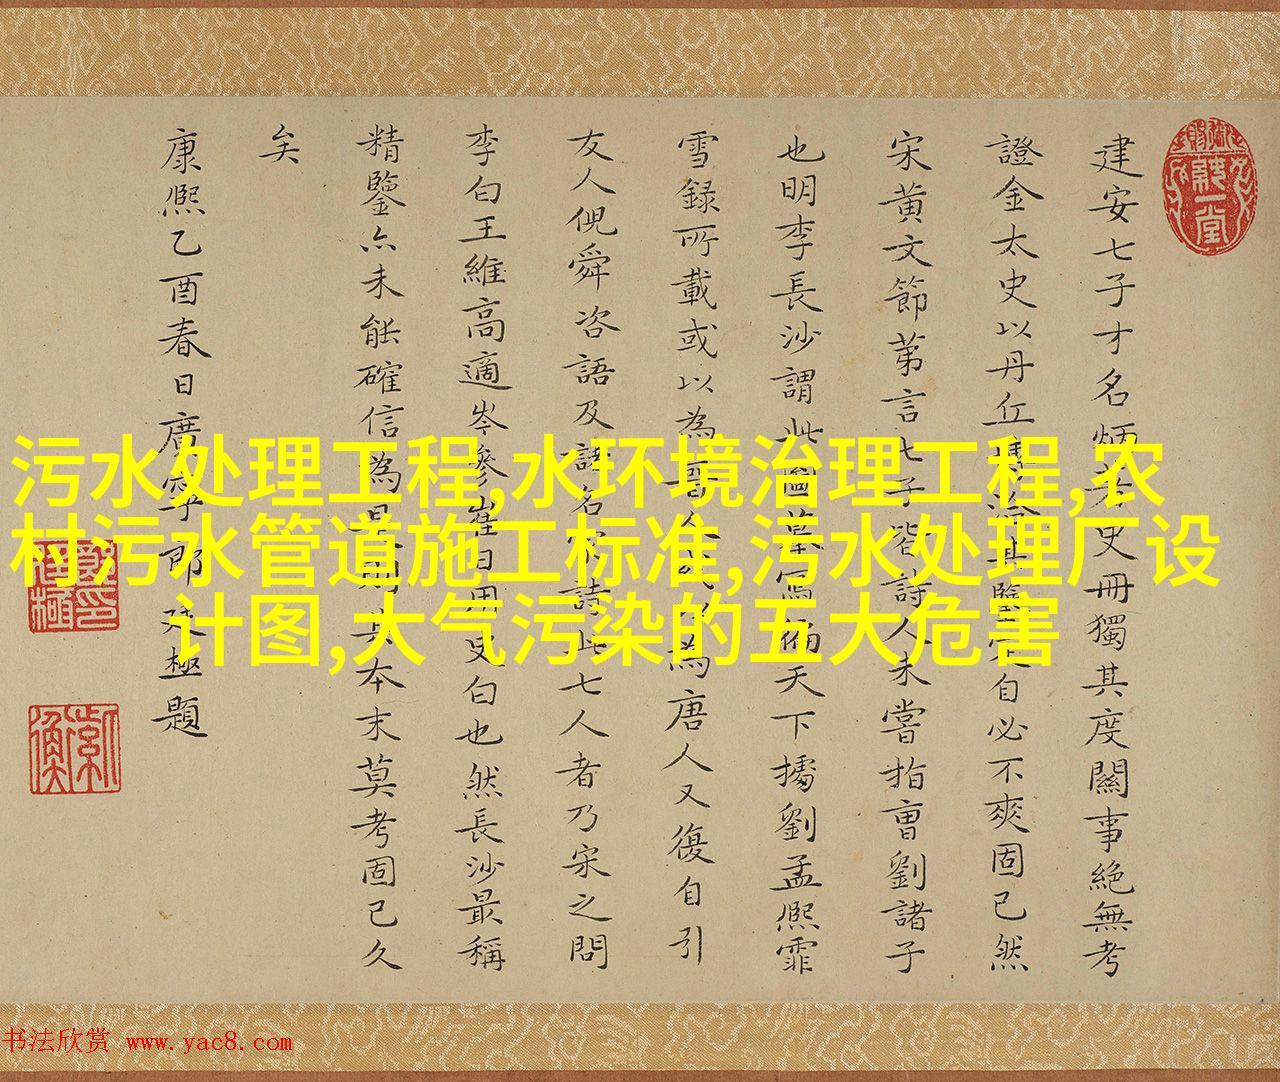 建安七子才名炳若史冊獨其度關事絶無考
證金太史以丹丘
自必不爽固已然
宋黄文節苐言七子皆詩人未嘗指曹劉諸子
也明李長沙謂此圖摹寫徧天下據劉孟熙霏
雪録所載或以為
為唐人又復自引
友人倪舜咨語及
詩此七人者乃宋之問
李白王維高適岑參崔
也然長沙最稱
精鑒亦未能確信為是則其本末莫考固已久
矣
康熙乙酉春日廣寧郎廷極題
污水处理工程,水环境治理工程,农
村污水管道施工标准,污水处理厂设
计图,大气污染的五大危害
书法欣赏 www.yac8.com